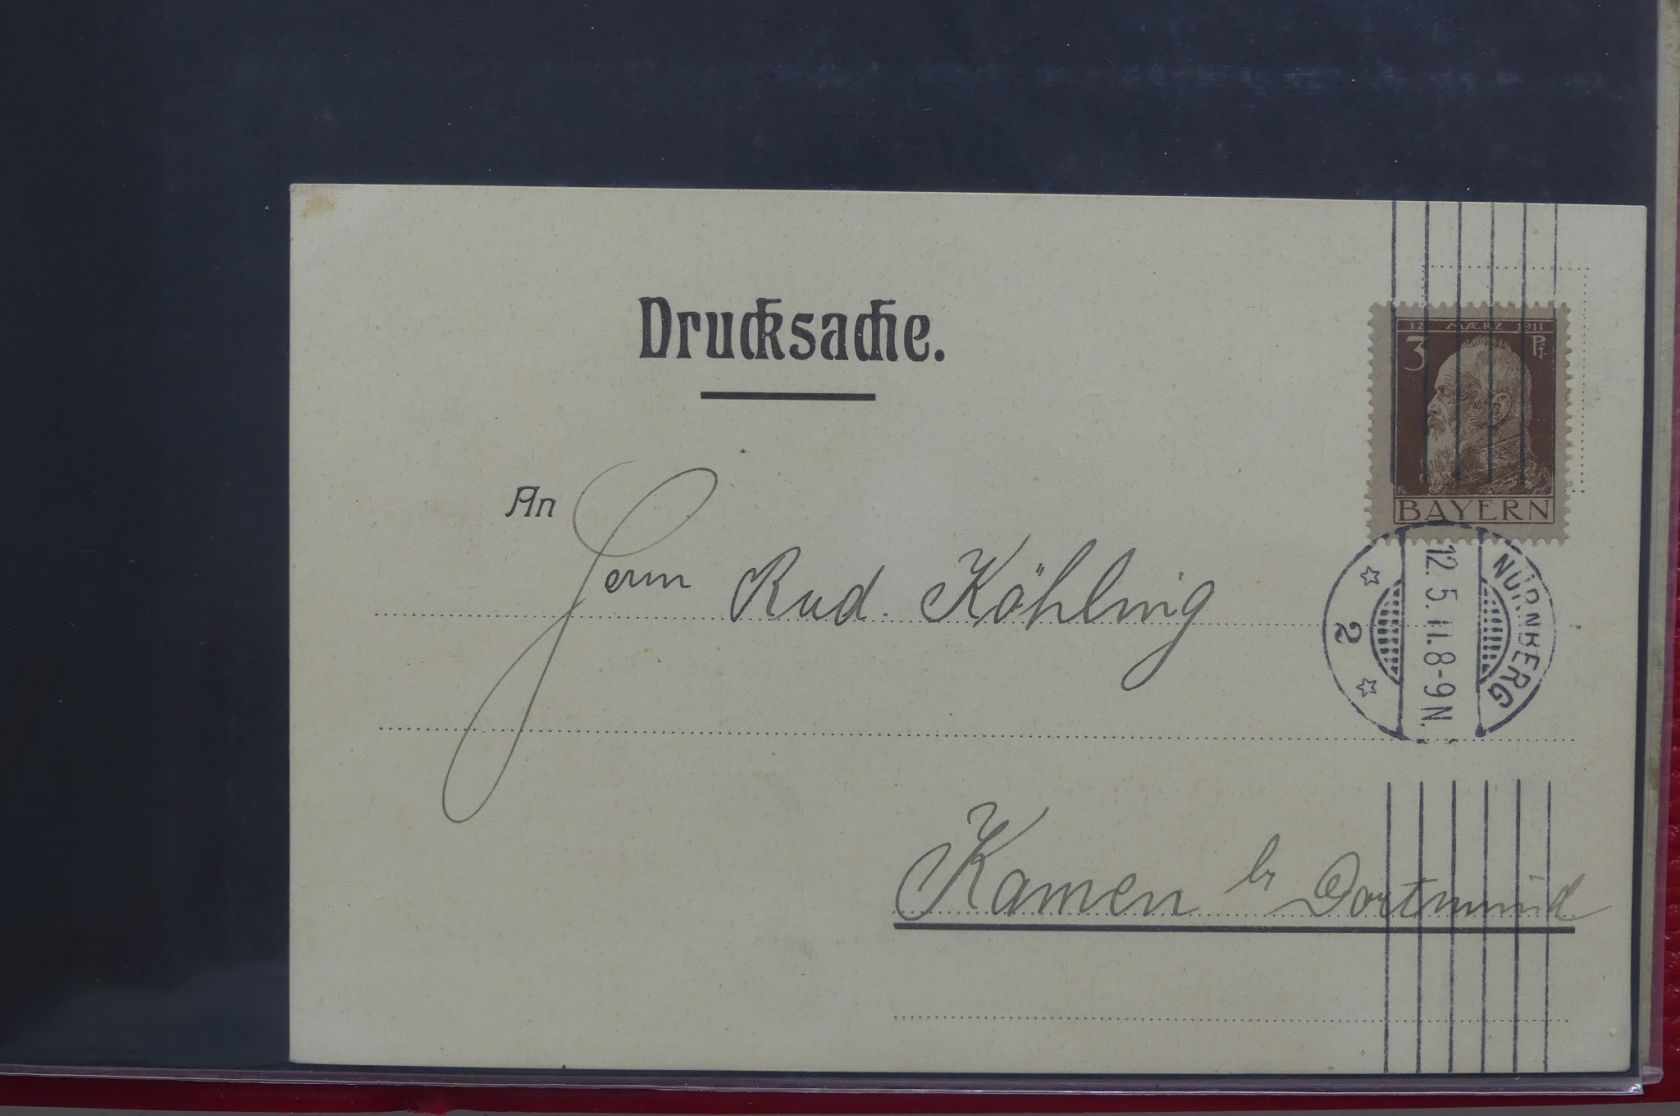 Drucksache.
12. MÆRZ 1911
3 Pf.
BAYERN
An
Herrn Rud. Köhling
NÜRNBERG
12. 5. 11. 8-9 N.
2
Kamen br Dortmund